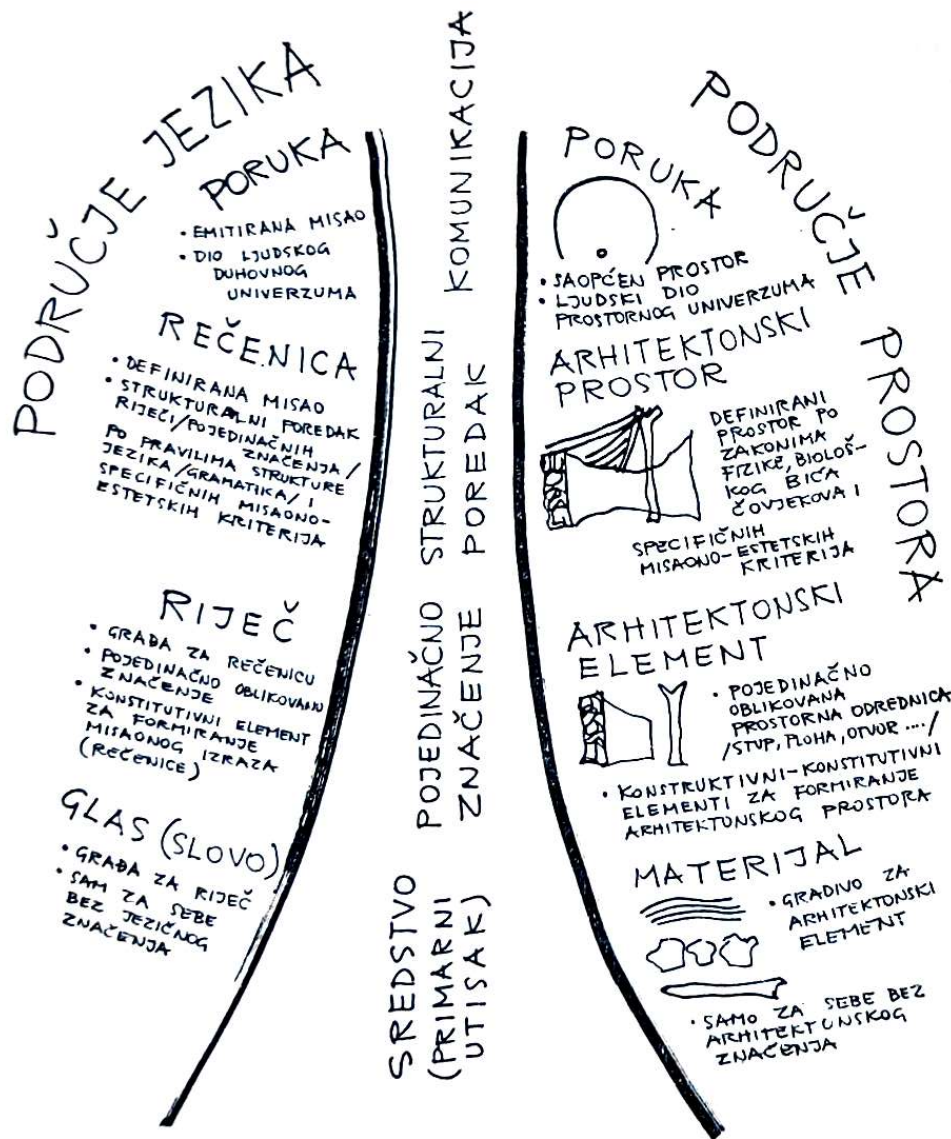 PODRUČJE JEZIKA
PORUKA
• EMITIRANA MISAO
• DIO LJUDSKOG
DUHOVNOG
UNIVERZUMA
REČENICA
• DEFINIRANA MISAO
• STRUKTURALNI POREDAK
RIJEČI/POJEDINAČNIH
ZNAČENJA/
PO PRAVILIMA STRUKTURE
JEZIKA/GRAMATIKA/ I
SPECIFIČNIH MISAONO-
ESTETSKIH KRITERIJA
RIJEČ
• GRAĐA ZA REČENICU
• POJEDINAČNO OBLIKOVANO
ZNAČENJE
• KONSTITUTIVNI ELEMENT
ZA FORMIRANJE
MISAONOG IZRAZA
(REČENICE)
GLAS (SLOVO)
• GRAĐA ZA RIJEČ
• SAM ZA SEBE
BEZ JEZIČNOG
ZNAČENJA
KOMUNIKACIJA
STRUKTURALNI
POREDAK
POJEDINAČNO
ZNAČENJE
SREDSTVO
(PRIMARNI
UTISAK)
PODRUČJE PROSTORA
PORUKA
• SAOPĆEN PROSTOR
• LJUDSKI DIO
PROSTORNOG UNIVERZUMA
ARHITEKTONSKI
PROSTOR
DEFINIRANI
PROSTOR PO
ZAKONIMA
FIZIKE, BIOLOŠ-
KOG BIĆA
ČOVJEKOVA I
SPECIFIČNIH
MISAONO-ESTETSKIH
KRITERIJA
ARHITEKTONSKI
ELEMENT
• POJEDINAČNO
OBLIKOVANA
PROSTORNA ODREDNICA
/STUP, PLOHA, OTVOR..../
• KONSTRUKTIVNI-KONSTITUTIVNI
ELEMENTI ZA FORMIRANJE
ARHITEKTONSKOG PROSTORA
MATERIJAL
• GRADIVO ZA
ARHITEKTONSKI
ELEMENT
• SAMO ZA SEBE BEZ
ARHITEKTONSKOG
ZNAČENJA